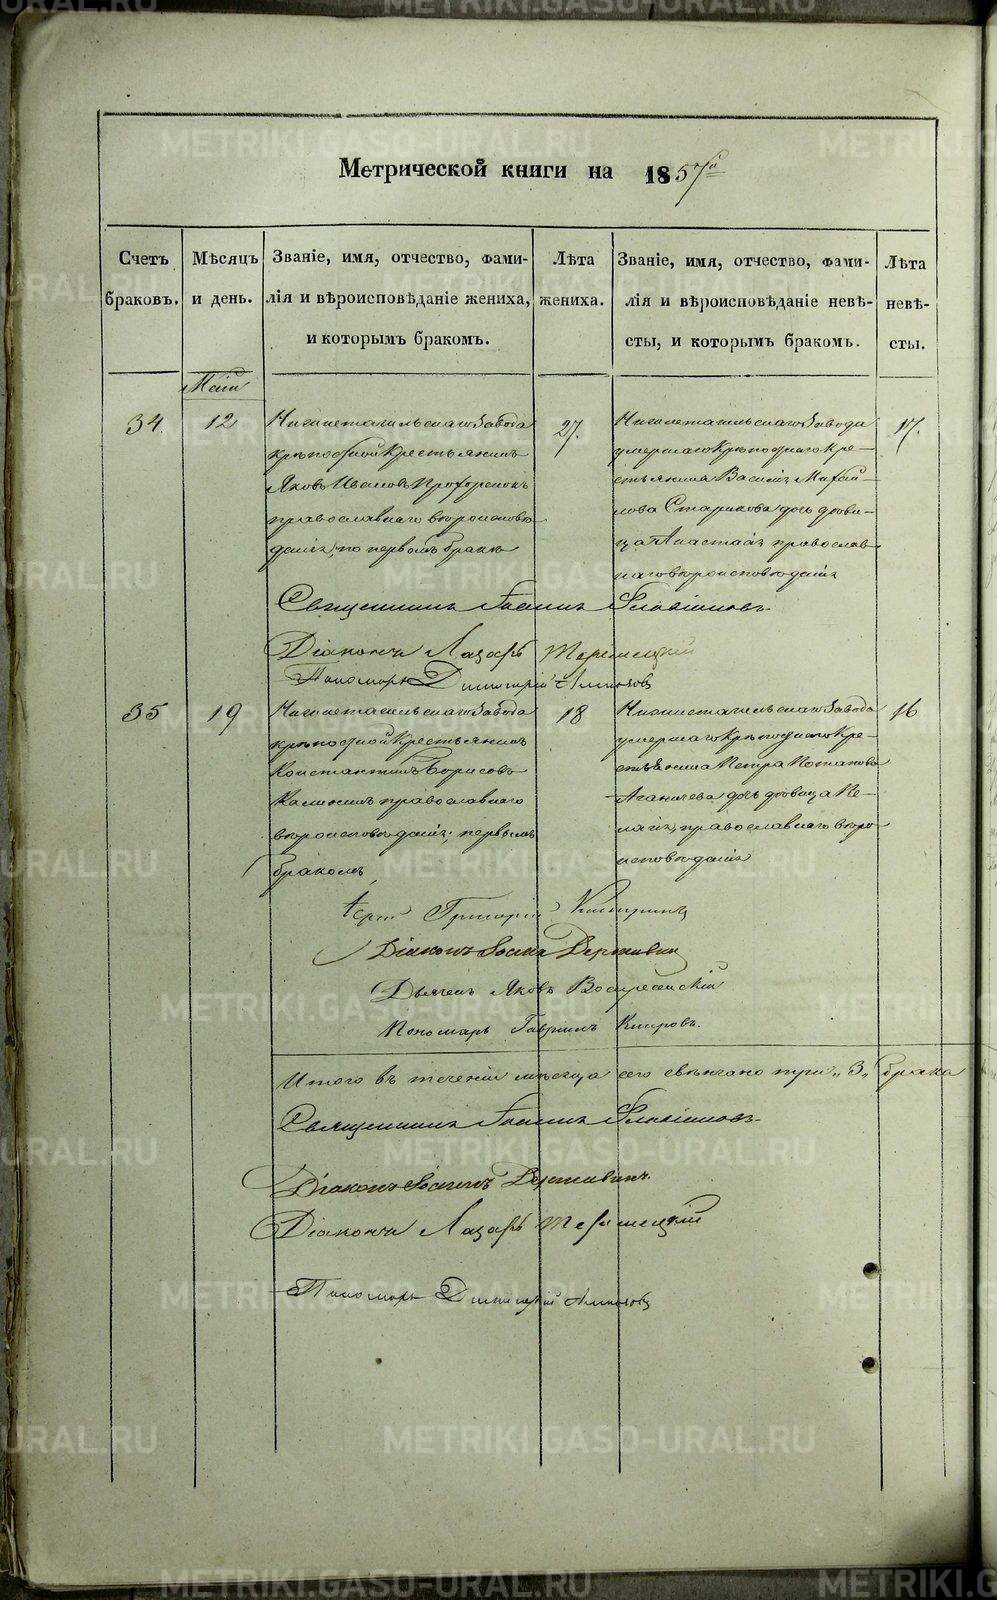 Метрической книги на 1857й
Счетъ браковъ.
Мѣсяцъ и день.
Званіе, имя, отчество, фами-
лія и вѣроисповѣданіе жениха,
и которымъ бракомъ.
Лѣта жениха.
Званіе, имя, отчество, фами-
лія и вѣроисповѣданіе невѣ-
сты, и которымъ бракомъ.
Лѣта невѣ-
сты.
Маій
34.
12
Нижнетагильскаго Завода
крѣпостной Крестьянинъ
Яковъ Ивановъ
православнаго вѣроисповѣ-
данія, по первомъ бракѣ
27.
Нижнетагильскаго Завода
умершаго Крѣпостнаго Кре-
стьянина Василія Михай-
лова Старикова дочь дѣви-
ца Анастасія православ-
наго вѣроисповѣданія
17.
Священникъ Іоаннъ Флавіановъ
Діаконъ Лазарь
Пономарь Димитрій
35
19
Нижнетагильскаго Завода
крѣпостной Крестьянинъ
Константинъ Борисовъ
Калининъ православнаго
вѣроисповѣданія, первымъ
бракомъ
18
Нижнетагильскаго Завода
умершаго Крѣпостнаго Кре-
стьянина Петра Потапова
дочь дѣвица Пе-
лагія, православнаго вѣро-
исповѣданія
16
Іерей Григорій
Діаконъ Іоаннъ Державинъ
Дьячекъ Яковъ Воскресенскій
Пономарь Гавріилъ Кировъ.
Итого въ теченіи мѣсяца сего свѣнчано три „3„ брака
Священникъ Іоаннъ Флавіановъ
Діаконъ Іоаннъ Державинъ.
Діаконъ Лазарь
Пономарь Димитрій
METRIKI.GASO-URAL.RU